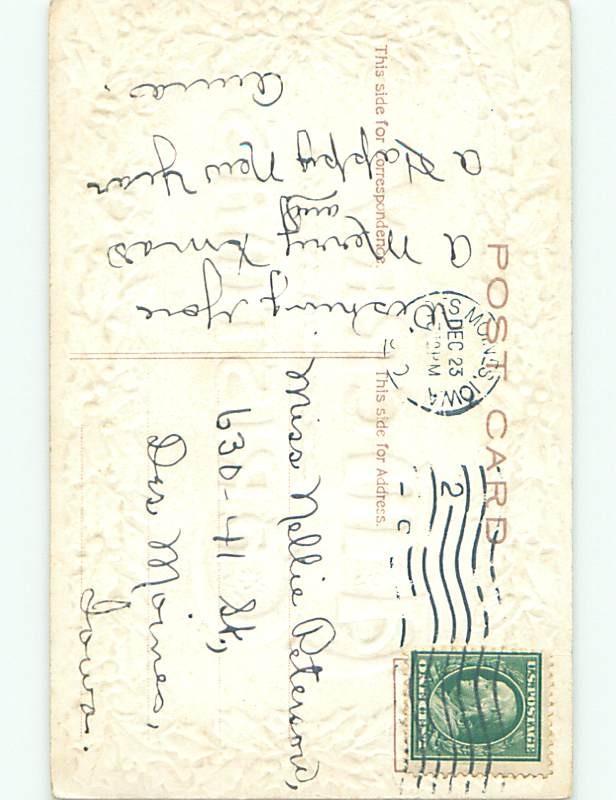 POST CARD
This side for Correspondence.
This side for Address.
DES MOINES, IOWA
DEC 23
PM
2
U.S. POSTAGE
ONE CENT
Wishing You
a Merry Xmas
and
a Happy New Year
Anna.
Miss Nellie Peterson,
630-41 St.,
Des Moines,
Iowa.